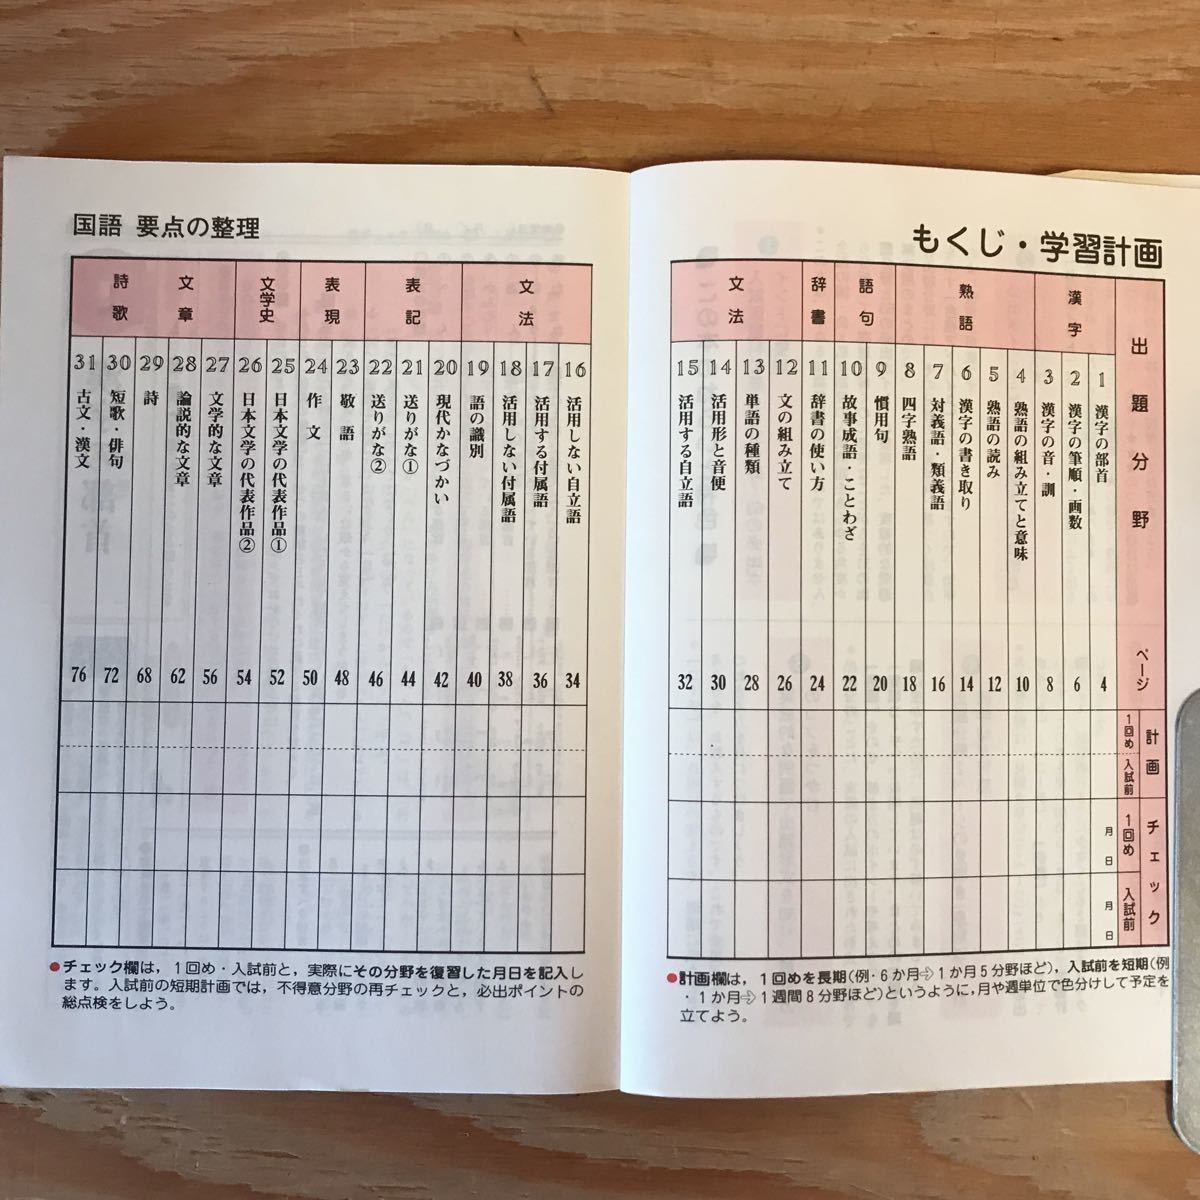 もくじ・学習計画
出題分野
ページ
計画
1回め
入試前
チェック
1回め
入試前
漢字
1 漢字の部首 4
月日
月日
2 漢字の筆順・画数 6
3 漢字の音・訓 8
熟語
4 熟語の組み立てと意味 10
5 熟語の読み 12
6 漢字の書き取り 14
7 対義語・類義語 16
8 四字熟語 18
語句
9 慣用句 20
10 故事成語・ことわざ 22
辞書
11 辞書の使い方 24
文法
12 文の組み立て 26
13 単語の種類 28
14 活用形と音便 30
15 活用する自立語 32
●計画欄は，1回めを長期（例・6か月⇨1か月5分野ほど），入試前を短期（例
・1か月⇨1週間8分野ほど）というように，月や週単位で色分けして予定を
立てよう。
国語 要点の整理
文法
16 活用しない自立語 34
17 活用する付属語 36
18 活用しない付属語 38
19 語の識別 40
表記
20 現代かなづかい 42
21 送りがな① 44
22 送りがな② 46
表現
23 敬語 48
24 作文 50
文学史
25 日本文学の代表作品① 52
26 日本文学の代表作品② 54
文章
27 文学的な文章 56
28 論説的な文章 62
詩歌
29 詩 68
30 短歌・俳句 72
31 古文・漢文 76
●チェック欄は，1回め・入試前と，実際にその分野を復習した月日を記入し
ます。入試前の短期計画では，不得意分野の再チェックと，必出ポイントの
総点検をしよう。